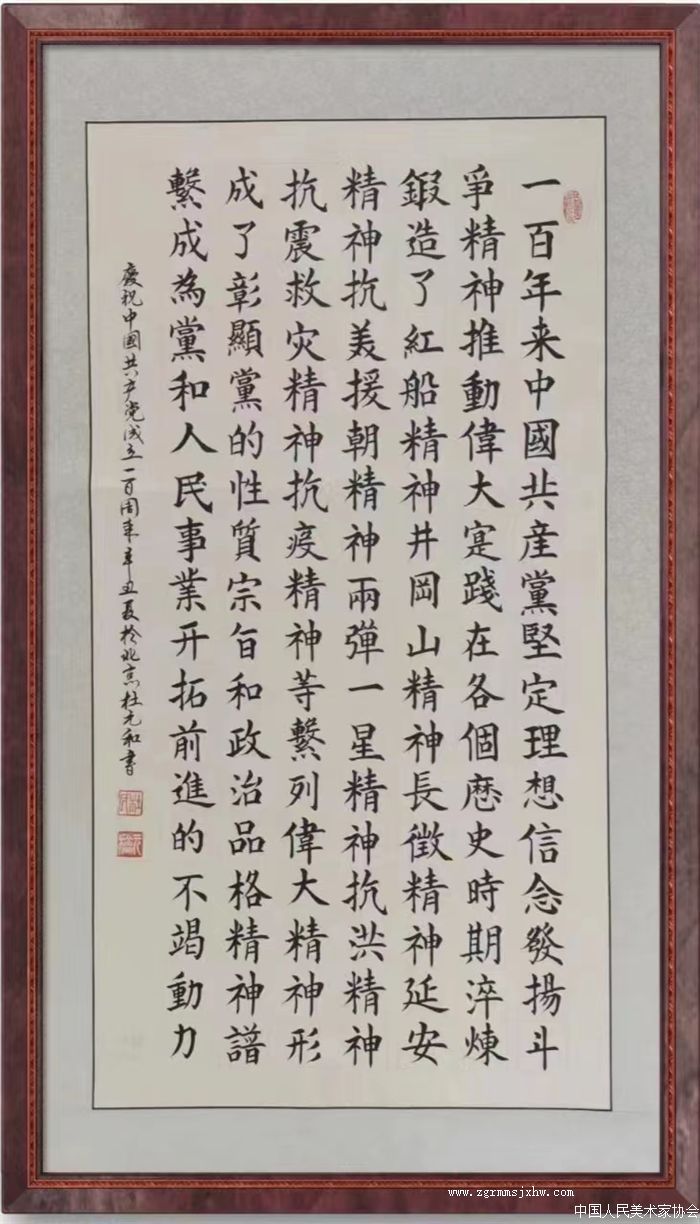 一百年来中國共産黨堅定理想信念發揚斗
爭精神推動偉大寔踐在各個歷史時期淬煉
鍛造了紅船精神井岡山精神長徵精神延安
精神抗美援朝精神兩彈一星精神抗洪精神
抗震救灾精神抗疫精神等繫列偉大精神形
成了彰顯黨的性質宗旨和政治品格精神譜
繫成為黨和人民事業开拓前進的不竭動力
慶祝中國共产党成立一百周年辛丑夏於北京杜元和書
www.zgrmmsjxhw.com
中国人民美术家协会